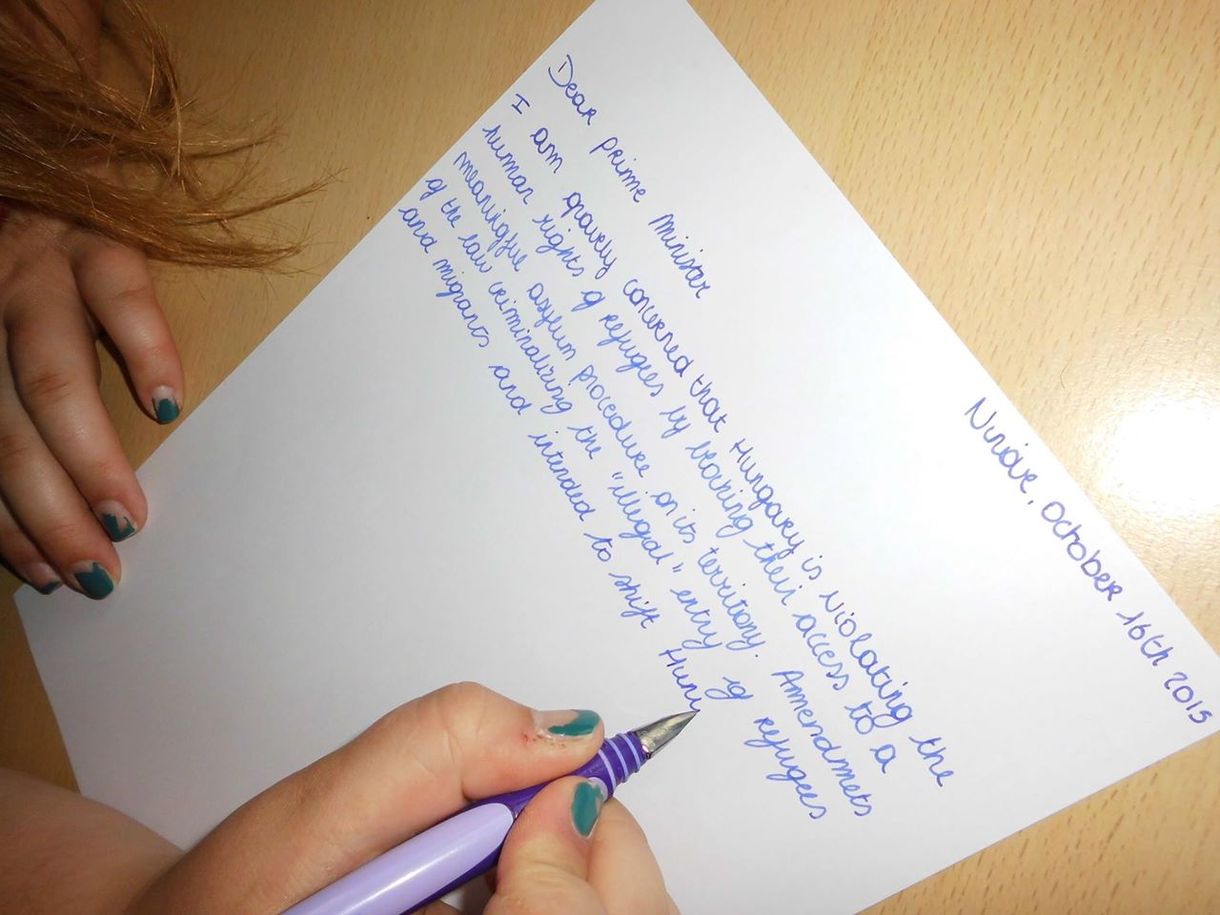 Ninove, October 16th 2015
Dear prime minister
I am gravely concerned that Hungary is violating the
human rights of refugies by braning their access to a
meaningful asylum procedure on its territiony. Amendmets
of the law criminalizing the "illegal" entry of refugees
and migrants and intended to shift Hung